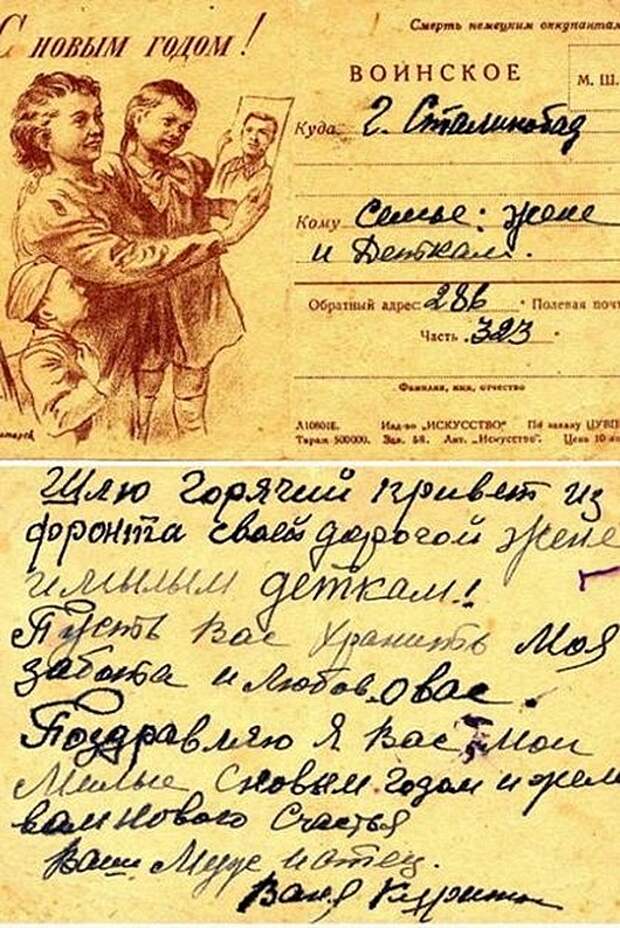 С НОВЫМ ГОДОМ!
Смерть немецким оккупантам
ВОИНСКОЕ
М. Ш.
Куда г. Сталинобад
Кому Семье: жене
и Деткам.
Обратный адрес: 286 Полевая почт
Часть 323
Фамилия, имя, отчество
Изд-во „ИСКУССТВО" По заказу ЦУВП
Тираж 500000. Зак. 58. Лит. „Искусство". Цена 10
Шлю горячий привет из
фронта своей дорогой жене
и милым деткам!
Пусть Вас хранить моя
забота и любов о вас.
Поздравляю я Вас мои
милые с новым годом и жел
вам нового счастья
Ваш муж и отец.
Ваня